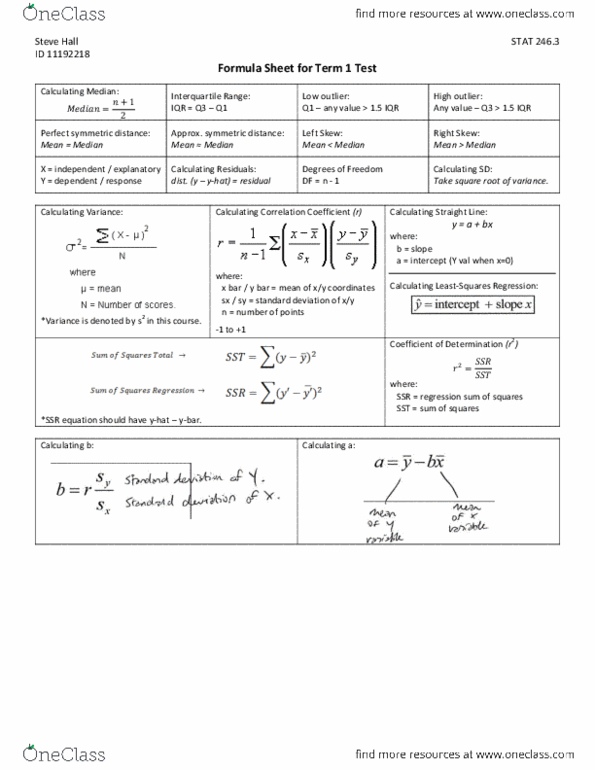 OneClass
find more resources at www.oneclass.com
Steve Hall
STAT 246.3
ID 11192218
Formula Sheet for Term 1 Test
Calculating Median:
Median = (n + 1) / 2
Interquartile Range:
IQR = Q3 – Q1
Low outlier:
Q1 – any value > 1.5 IQR
High outlier:
Any value – Q3 > 1.5 IQR
Perfect symmetric distance:
Mean = Median
Approx. symmetric distance:
Mean = Median
Left Skew:
Mean < Median
Right Skew:
Mean > Median
X = independent / explanatory
Y = dependent / response
Calculating Residuals:
dist. (y – y-hat) = residual
Degrees of Freedom
DF = n - 1
Calculating SD:
Take square root of variance.
Calculating Variance:
σ² = Σ(X - μ)² / N
where
μ = mean
N = Number of scores.
*Variance is denoted by s² in this course.
Calculating Correlation Coefficient (r)
r = 1/(n−1) Σ((x − x̅)/sₓ)((y − y̅)/s_y)
where:
x bar / y bar = mean of x/y coordinates
sx / sy = standard deviation of x/y
n = number of points
-1 to +1
Calculating Straight Line:
y = a + bx
where:
b = slope
a = intercept (Y val when x=0)
Calculating Least-Squares Regression:
ŷ = intercept + slope x
Sum of Squares Total → SST = Σ(y − y̅)²
Sum of Squares Regression → SSR = Σ(y′ − y̅′)²
*SSR equation should have y-hat – y-bar.
Coefficient of Determination (r²)
r² = SSR / SST
where:
SSR = regression sum of squares
SST = sum of squares
Calculating b:
b = r s_y / sₓ
Standard deviation of Y.
Standard deviation of X.
Calculating a:
a = y̅ − bx̅
mean
of Y
variable
mean
of X
variable
OneClass
find more resources at www.oneclass.com